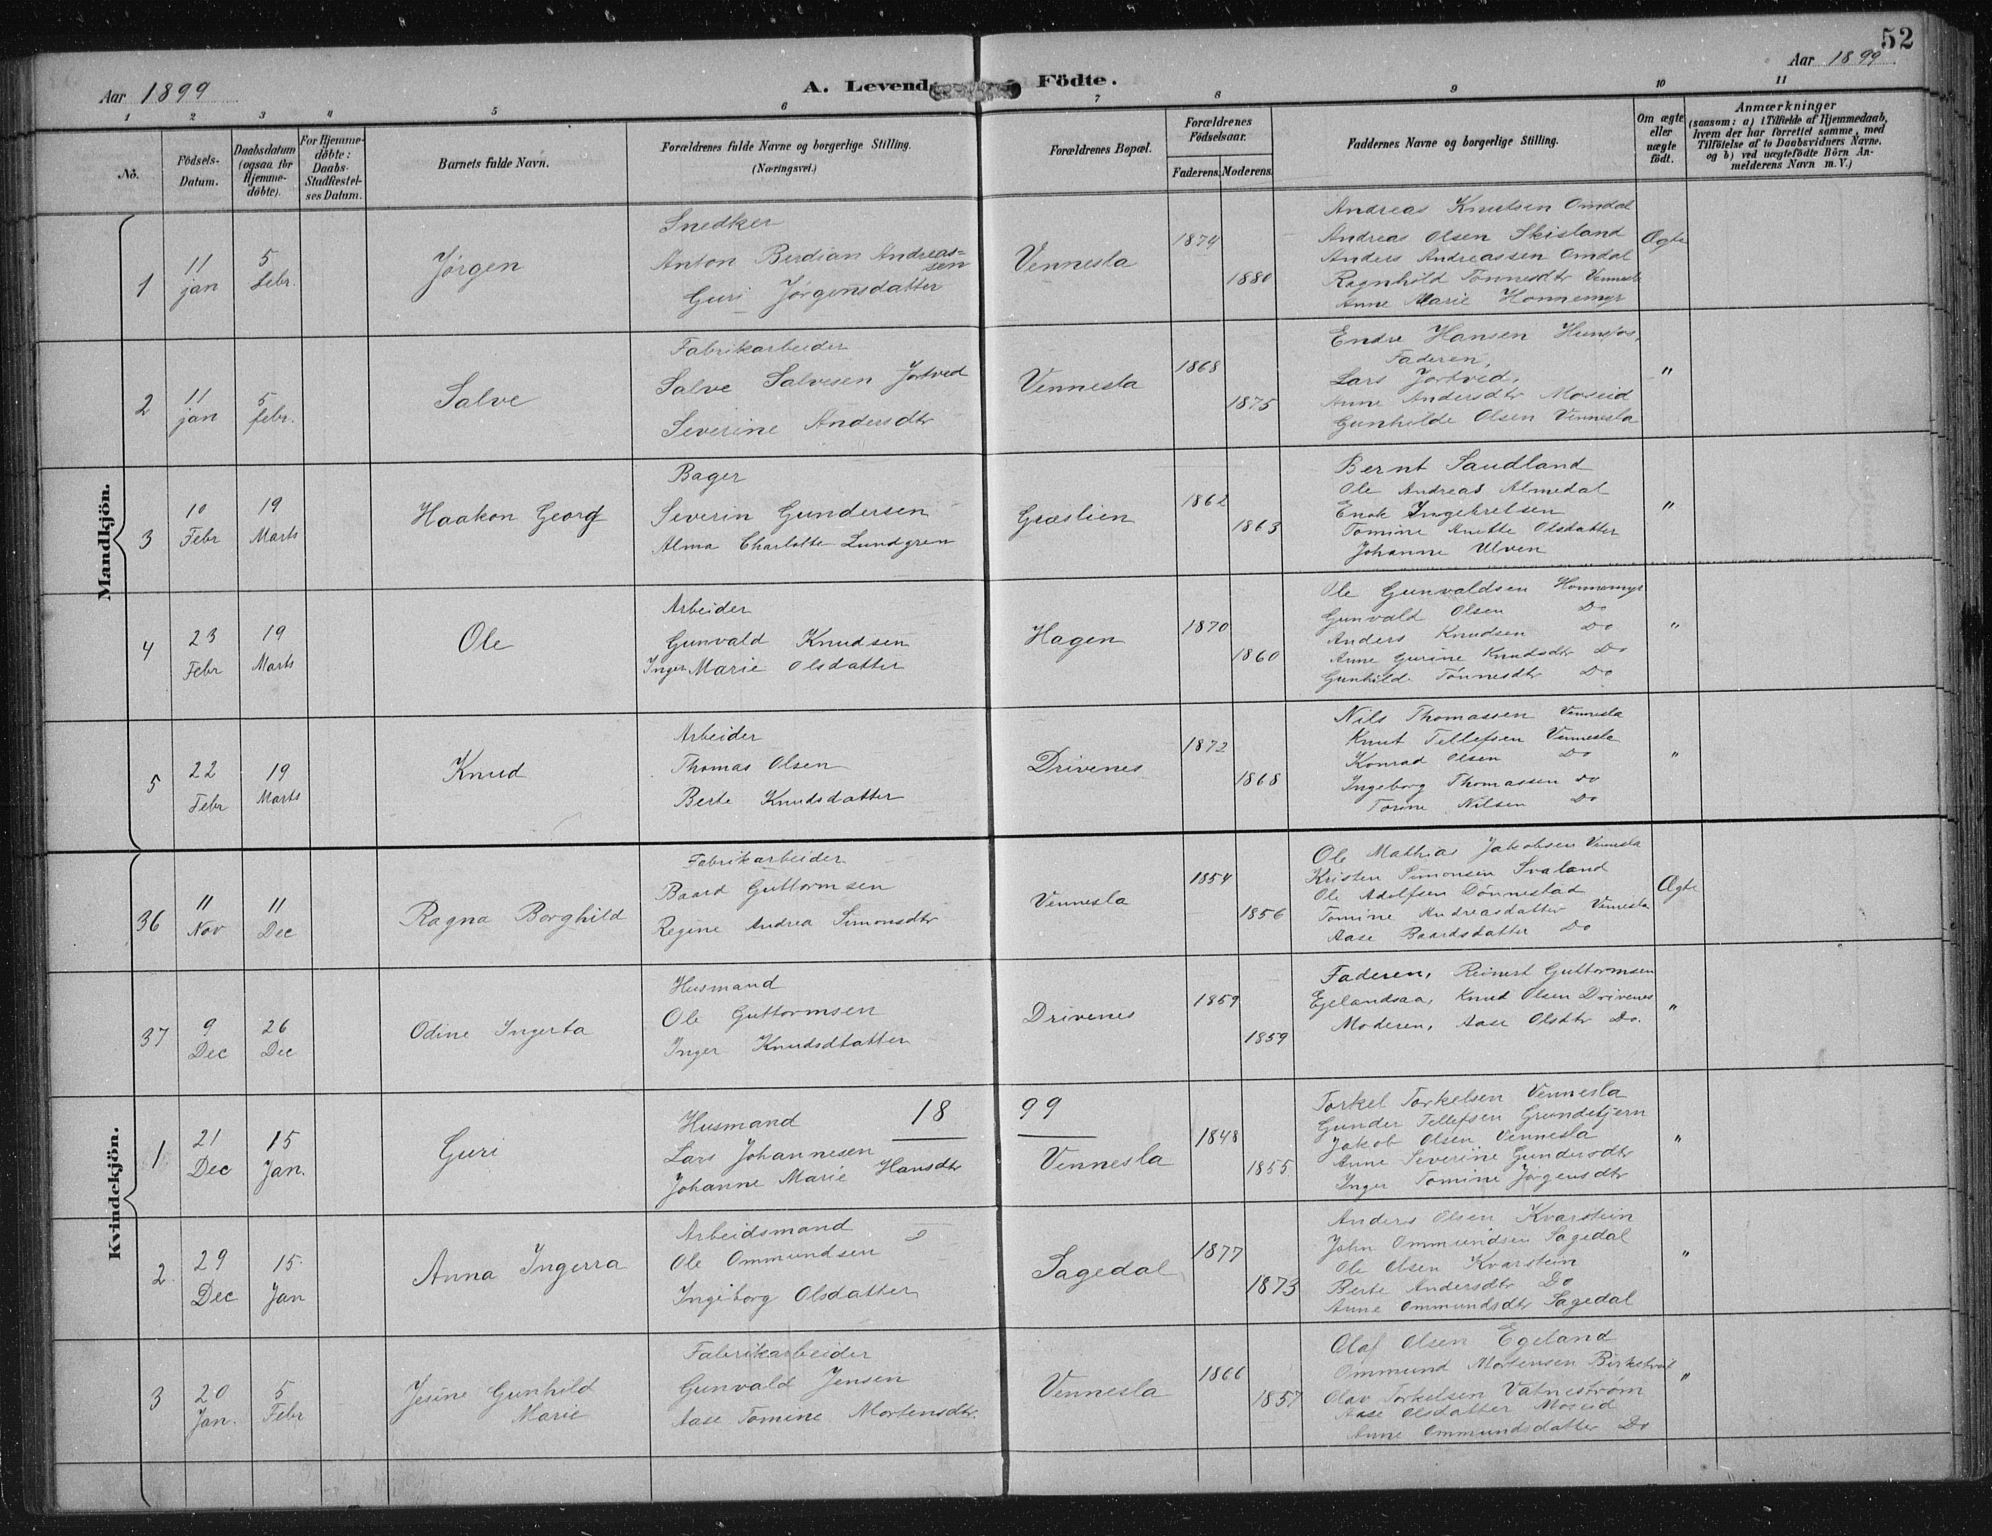 52
Aar 1899
A. Levende Födte.
Aar 1899
1 2 3 4 5 6 7 8 9 10 11
No.
Födsels-Datum.
Daabsdatum (ogsaa for Hjemme-døbte).
For Hjemme-døbte: Daabs-Stadfæstel-ses Datum.
Barnets fulde Navn.
Forældrenes fulde Navne og borgerlige Stilling.
(Næringsvei.)
Forældrenes Bopæl.
Forældrenes Födselsaar.
Faderens. Moderens.
Faddernes Navne og borgerlige Stilling.
Om ægte eller uægte födt.
Anmærkninger
(saasom: a) i Tilfælde af Hjemmedaab, hvem der har forrettet samme, med Tilføielse af to Daabsvidners Navne, og b) ved uægtefödte Börn An-melderens Navn m. V.)
Mandkjön.
1
11 jan
5 febr.
Jørgen
Snedker
Anton Berdian Andreas-sen
Guri Jørgensdatter
Vennesla
1874
1880
Andreas Knutsen Omdal
Andreas Olsen Skisland
Anders Andreassen Omdal
Ragnhild Tønnesdtr Vennesla
Anne Marie Honnemyr
Ægte
2
11 jan
5 febr.
Salve
Fabrikarbeider
Salve Salvesen Jortved
Severine Andersdtr
Vennesla
1868
1875
Endre Hansen Hunsfos,
Faderen,
Lars Jortved,
Anne Andersdtr Moseid
Gunhilde Olsen Vennesla
"
3
10 Febr
19 Marts
Haakon Georg
Bager
Severin Gundersen
Alma Charlotte Lundgren
Græslien
1862
1863
Bernt Saudland
Ole Andreas Almedal
Enok Ingebretsen
Tomine Anette Olsdatter
Johanne Ulven
"
4
23 Febr
19 Marts
Ole
Arbeider
Gunvald Knudsen
Inger Marie Olsdatter
Hagen
1870
1860
Ole Gunvaldsen Honnemyr
Gunvald Olsen Do
Anders Knudsen Do
Anne Gurine Knudsdtr Do
Gunhild Tønnesdtr Do
"
5
22 Febr
19 Marts
Knud
Arbeider
Thomas Olsen
Berte Knudsdatter
Drivenes
1872
1868
Nils Thomassen Vennesla
Knut Tellefsen Vennesla
Konrad Olsen Do
Ingeborg Thomassen do
Torine Nilsen Do
"
Kvindekjön.
36
11 Nov
11 Dec
Ragna Borghild
Fabrikarbeider
Baard Guttormsen
Regine Andrea Simonsdtr
Vennesla
1854
1856
Ole Mathias Jakobsen Vennesla
Kristen Simonsen Svaland
Ole Adolfsen Dønnestad
Tomine Andreasdatter Vennesla
Aase Baardsdatter Do
Ægte
37
9 Dec
26 Dec
Odine Ingerta
Husmand
Ole Guttormsen
Inger Knudsdtatter
Drivenes
1859
1859
Faderen, Reinert Guttormsen
Egelandsaa, Knud Olsen Drivenes
Moderen, Aase Olsdtr Do.
"
18 99
1
21 Dec
15 Jan.
Guri
Husmand
Lars Johannesen
Johanne Marie Hansdtr
Vennesla
1848
1855
Torkel Torkelsen Vennesla
Gunder Tellefsen Grundetjern
Jakob Olsen Vennesla
Anne Severine Gundersdtr
Inger Tomine Jørgensdtr
"
2.
29 Dec
15. Jan
Anna Ingerra
Arbeidsmand
Ole Ommundsen
Ingeborg Olsdatter
Sagedal
1877
1873
Anders Olsen Kvarstein
John Ommundsen Sagedal
Ole Olsen Kvarstein
Berte Andersdtr Do
Anne Ommundsdtr Sagedal
"
3
20 Jan.
5 Febr
Jesine Gunhild
Marie
Fabrikarbeider
Gunvald Jensen
Aase Tomine Mortensdtr.
Vennesla
1866
1857
Olaf Olsen Egeland
Ommund Mortensen
Olav Torkelsen Vatnestrøm
Aase Olsdatter Moseid
Anne Ommundsdatter Do
"